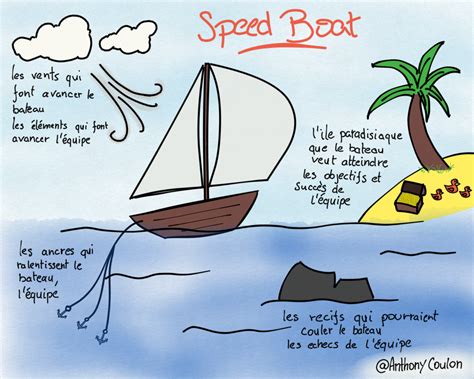 Speed Boat
les vents qui
font avancer le
bateau
les éléments qui font
avancer l'équipe
l'île paradisiaque
que le bateau
veut atteindre
les objectifs et
succès de
l'équipe
les ancres qui
ralentissent le
bateau,
l'équipe
les recifs qui pourraient
couler le bateau
les echecs de l'équipe
@Anthony Coulon